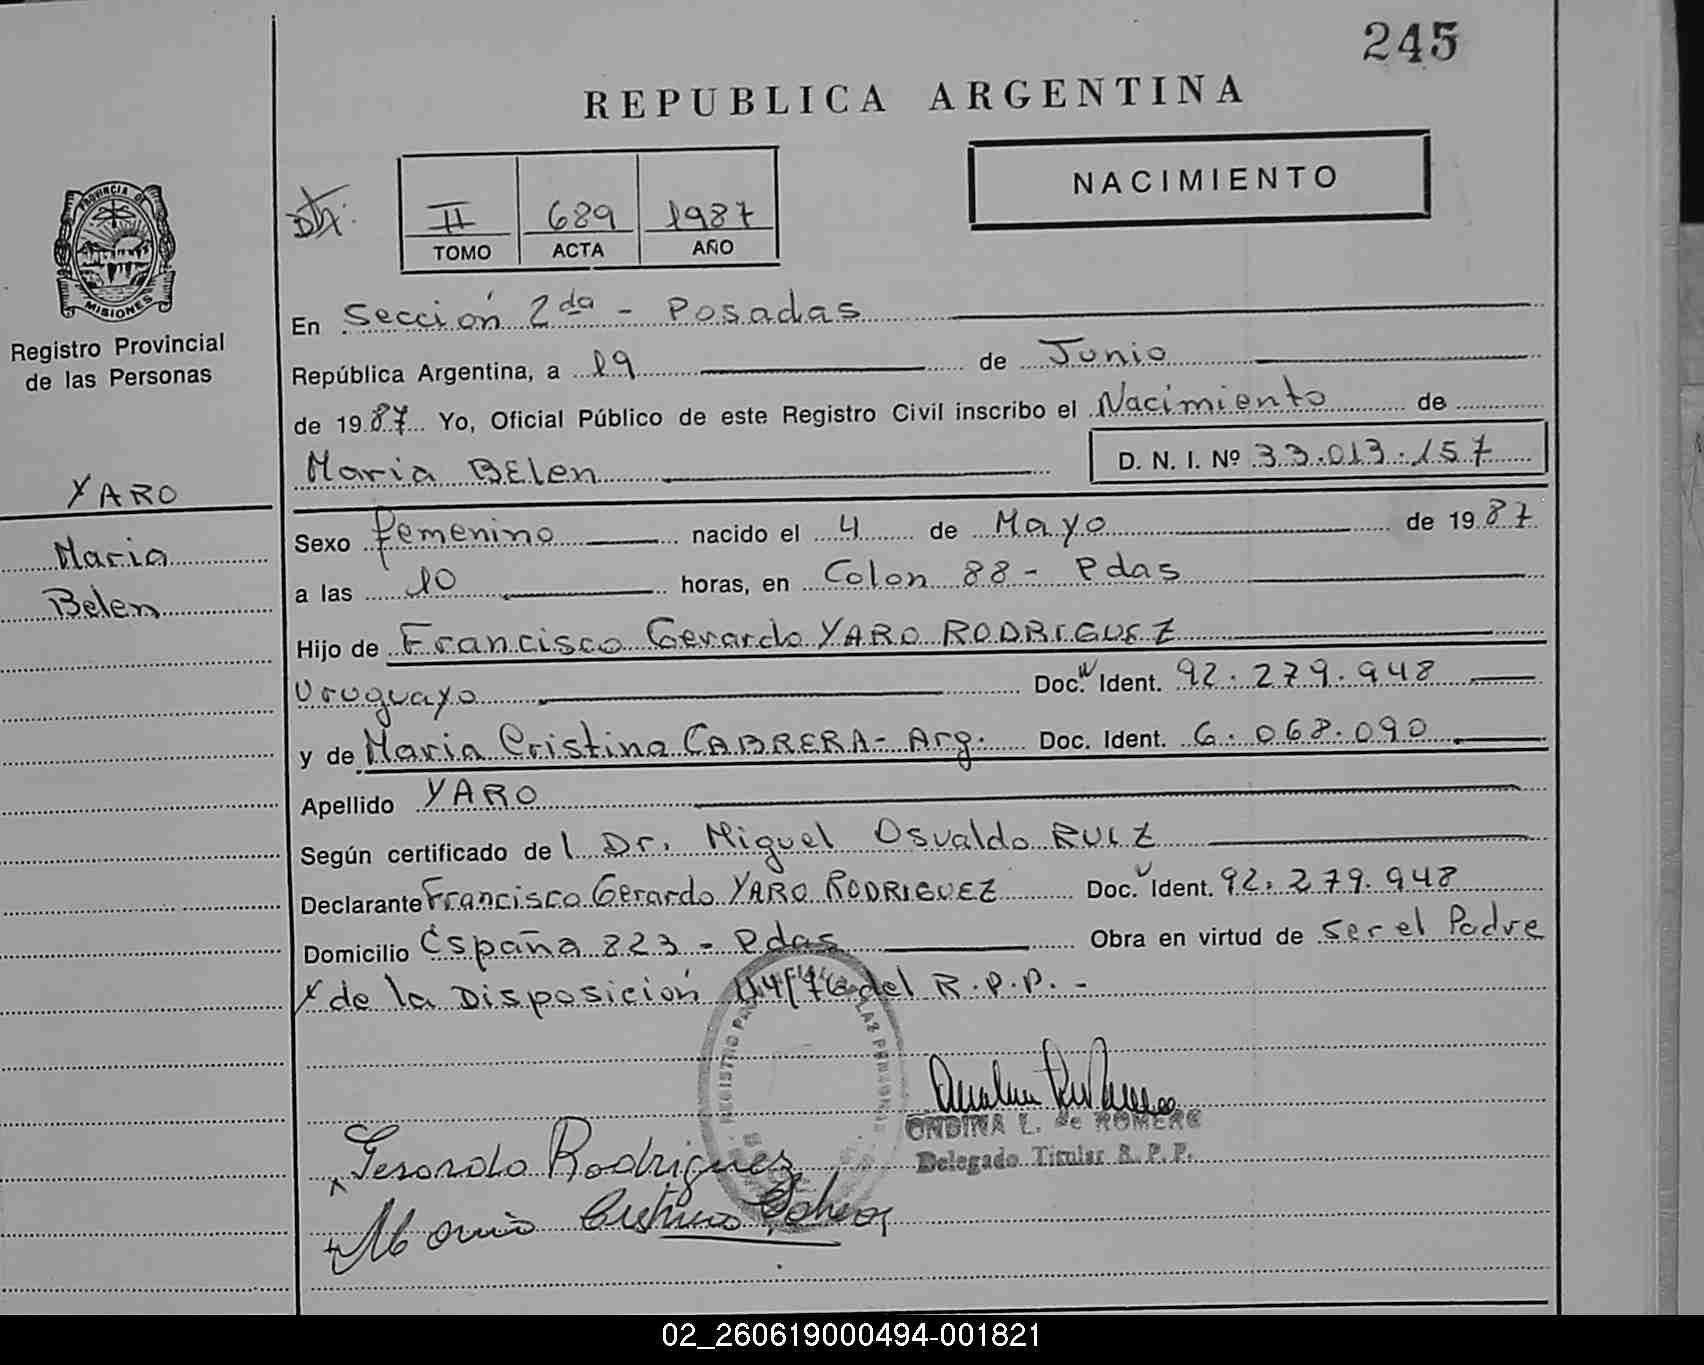 245
REPUBLICA ARGENTINA
NACIMIENTO
II 689 1987
TOMO ACTA AÑO
PROVINCIA DE MISIONES
Registro Provincial
de las Personas
YARO
Maria
Belen
En Sección 2da - Posadas
República Argentina, a 19 de Junio
de 1987 Yo, Oficial Público de este Registro Civil inscribo el Nacimiento de
Maria BElen D. N. I. Nº 33.013.157
Sexo femenino nacido el 4 de Mayo de 1987
a las 10 horas, en Colon 88 - Pdas
Hijo de Francisco Gerardo YARO RODRIGUEZ
Uruguayo Doc. Ident. 92.279.948
y de Maria Cristina CABRERA - Arg. Doc. Ident. 6.068.090
Apellido YARO
Según certificado del Dr. Miguel Osvaldo RUIZ
Declarante Francisco Gerardo YARO RODRIGUEZ Doc. Ident. 92.279.948
Domicilio España 223 - Pdas Obra en virtud de ser el Padre
y de la Disposición 14/76 del R.P.P. -
ONDINA L. de ROMERO
Delegado Titular R. P. P.
Gerardo Rodriguez
Maria Cristina Cabrera
02_260619000494-001821